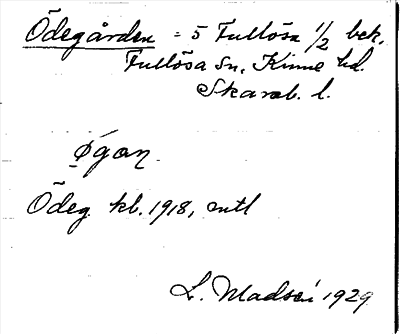 Ödegården = 5 Fullösa 1/2 bek.
Fullösa Sn, Kinne hd.
Skarab. l.
Øgan
Ödeg. kb. 1918, entl
L. Madsén 1929